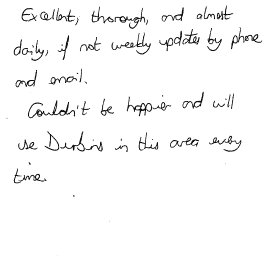 Excellent, thorough, and almost
daily, if not weekly updates by phone
and email.
Couldn't be happier and will
use Durbins in this area every
time.